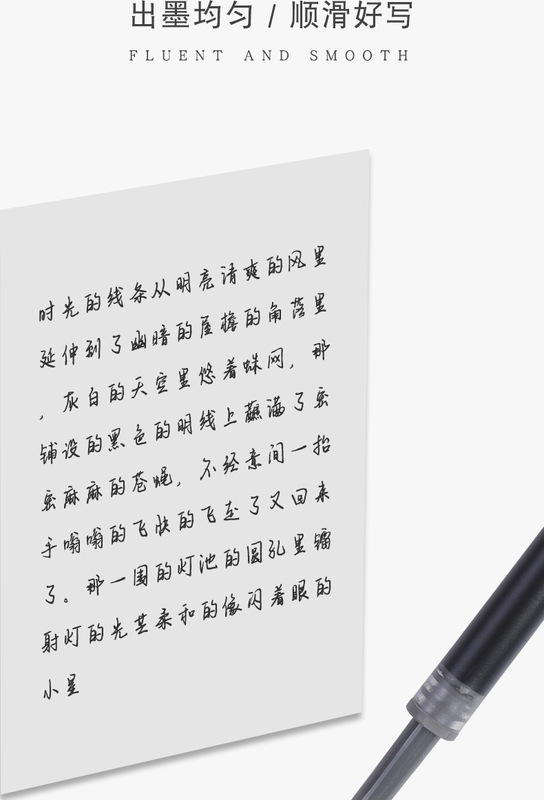 出墨均匀 / 顺滑好写
FLUENT AND SMOOTH
时光的线条从明亮清爽的风里
延伸到了幽暗的屋檐的角落里
，灰白的天空里悠着蛛网，那
铺设的黑色的明线上蘸满了密
密麻麻的苍蝇，不经意间一抬
手嗡嗡的飞快的飞走了又回来
了。那一围的灯池的圆孔里镭
射灯的光芒柔和的像闪着眼的
小星